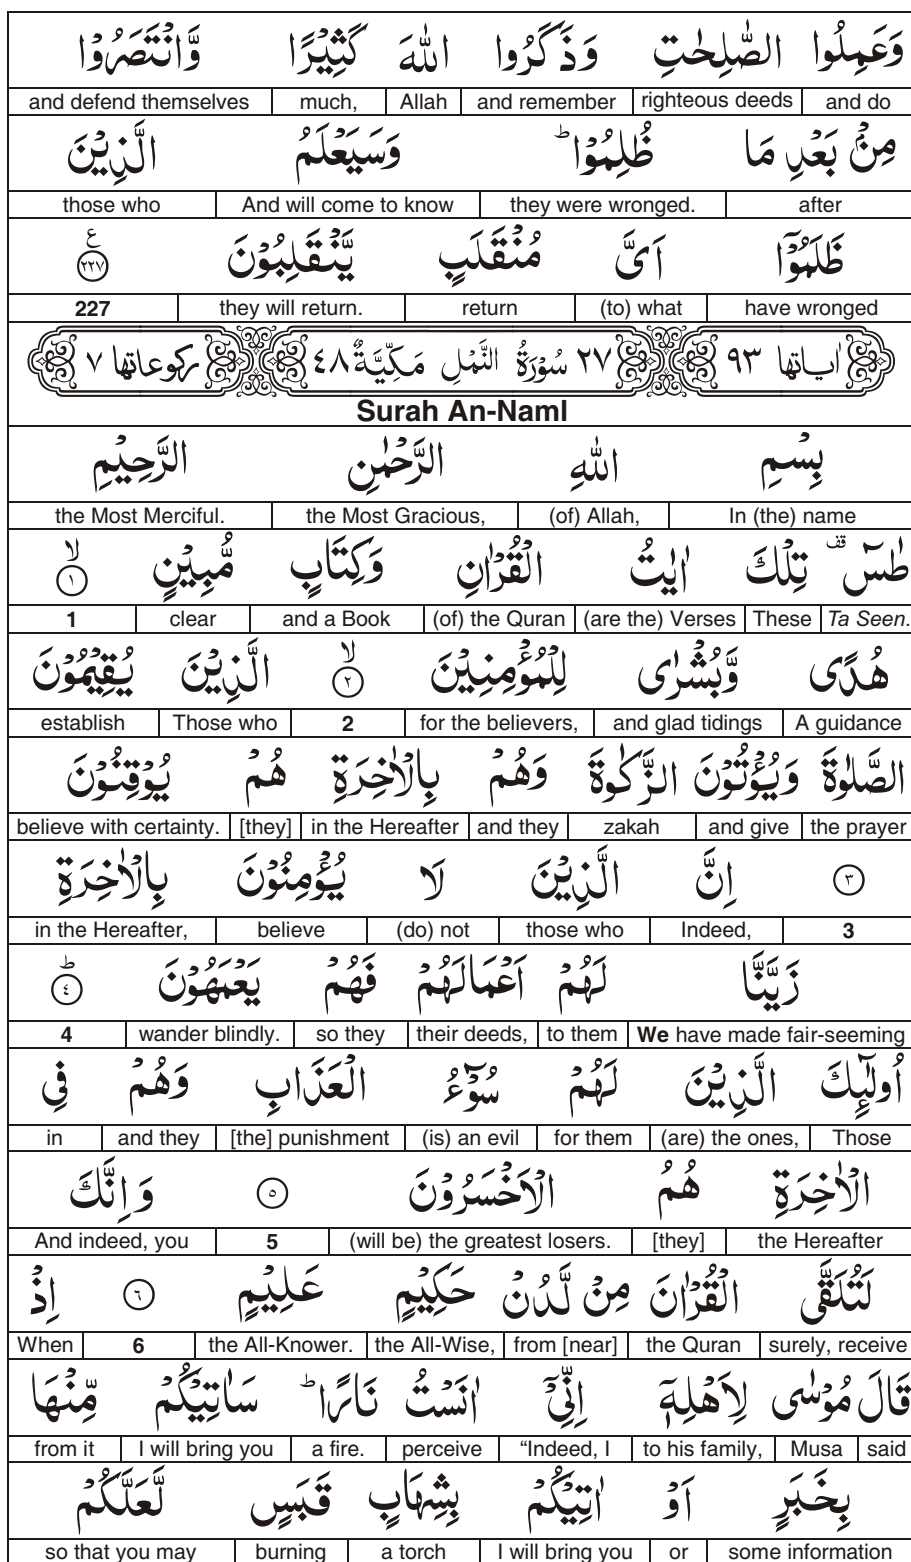 وَعَمِلُوا الصّٰلِحٰتِ وَذَكَرُوا اللّٰهَ كَثِيْرًا وَّانْتَصَرُوْا
and do righteous deeds and remember Allah much, and defend themselves
مِنْۢ بَعْدِ مَا ظُلِمُوْا ؕ وَسَيَعْلَمُ الَّذِيْنَ
after they were wronged. And will come to know those who
ظَلَمُوْۤا اَىَّ مُنْقَلَبٍ يَّنْقَلِبُوْنَ ع ٢٢٧
have wronged (to) what return they will return. 227
اٰياتها ٩٣ ٢٧ سُوْرَةُ النَّمْلِ مَكِّيَّةٌ ٤٨ ركوعاتها ٧
Surah An-Naml
بِسْمِ اللّٰهِ الرَّحْمٰنِ الرَّحِيْمِ
In (the) name (of) Allah, the Most Gracious, the Most Merciful.
طٰسٓ ۚقف تِلْكَ اٰيٰتُ الْقُرْاٰنِ وَكِتَابٍ مُّبِيْنٍ ۙ ١
Ta Seen. These (are the) Verses (of) the Quran and a Book clear 1
هُدًى وَّبُشْرٰى لِلْمُؤْمِنِيْنَ ۙ ٢ الَّذِيْنَ يُقِيْمُوْنَ
A guidance and glad tidings for the believers, 2 Those who establish
الصَّلٰوةَ وَيُؤْتُوْنَ الزَّكٰوةَ وَهُمْ بِالْاٰخِرَةِ هُمْ يُوْقِنُوْنَ
the prayer and give zakah and they in the Hereafter [they] believe with certainty.
٣ اِنَّ الَّذِيْنَ لَا يُؤْمِنُوْنَ بِالْاٰخِرَةِ
3 Indeed, those who (do) not believe in the Hereafter,
زَيَّنَّا لَهُمْ اَعْمَالَهُمْ فَهُمْ يَعْمَهُوْنَ ؕ ٤
We have made fair-seeming to them their deeds, so they wander blindly. 4
اُولٰٓئِكَ الَّذِيْنَ لَهُمْ سُوْٓءُ الْعَذَابِ وَهُمْ فِى
Those (are) the ones, for them (is) an evil [the] punishment and they in
الْاٰخِرَةِ هُمُ الْاَخْسَرُوْنَ ٥ وَاِنَّكَ
the Hereafter [they] (will be) the greatest losers. 5 And indeed, you
لَتُلَقَّى الْقُرْاٰنَ مِنْ لَّدُنْ حَكِيْمٍ عَلِيْمٍ ٦ اِذْ
surely, receive the Quran from [near] the All-Wise, the All-Knower. 6 When
قَالَ مُوْسٰى لِاَهْلِهٖۤ اِنِّىْۤ اٰنَسْتُ نَارًا ؕ سَاٰتِيْكُمْ مِّنْهَا
said Musa to his family, “Indeed, I perceive a fire. I will bring you from it
بِخَبَرٍ اَوْ اٰتِيْكُمْ بِشِهَابٍ قَبَسٍ لَّعَلَّكُمْ
some information or I will bring you a torch burning so that you may